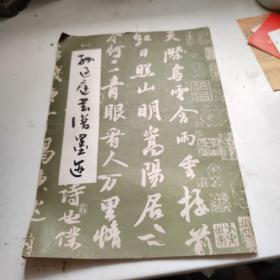 孫過庭書譜墨迹
天際烏雲含雨重樓前
紅日照山明嵩陽居士
今何在青眼看人萬里情
詩也僕